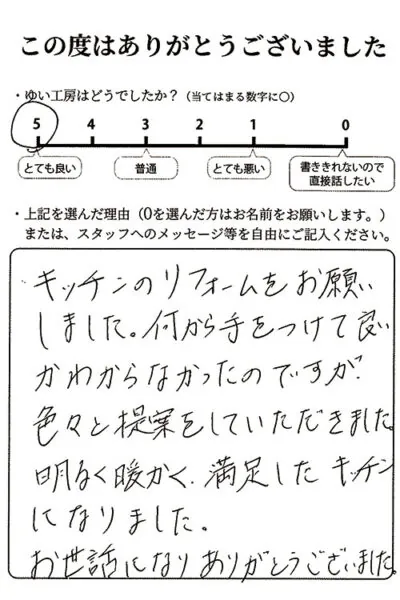 この度はありがとうございました
・ゆい工房はどうでしたか？（当てはまる数字に〇）
5 4 3 2 1 0
とても良い 普通 とても悪い 書ききれないので
直接話したい
・上記を選んだ理由（0を選んだ方はお名前をお願いします。）
または、スタッフへのメッセージ等を自由にご記入ください。
キッチンのリフォームをお願い
しました。何から手をつけて良い
かわからなかったのですが、
色々と提案をしていただきました。
明るく暖かく、満足したキッチン
になりました。
お世話になりありがとうございました。